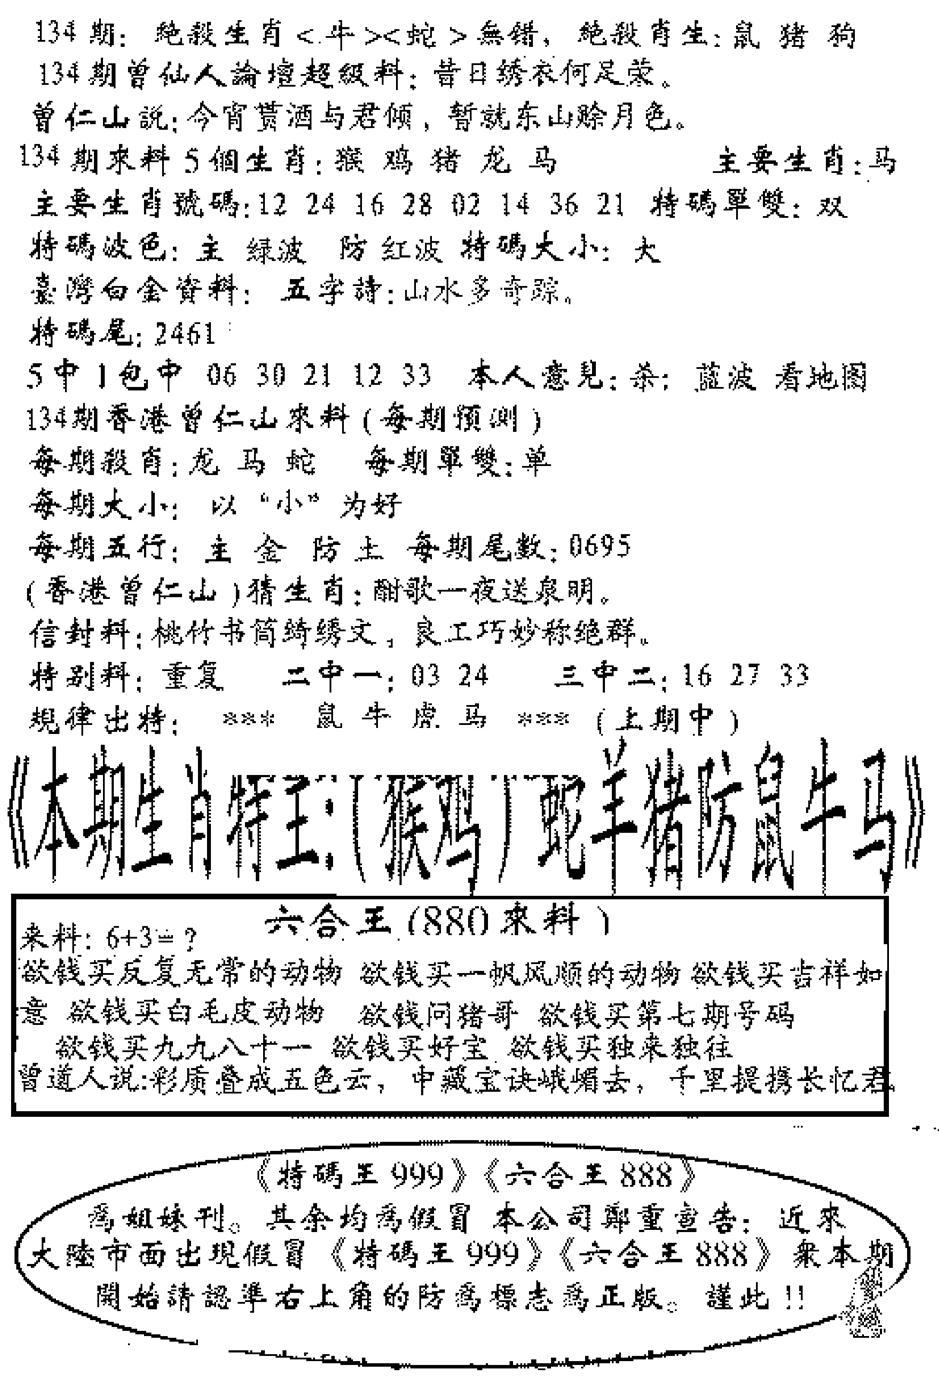 134期: 絶殺生肖<牛><蛇>無错, 絶殺肖生: 鼠 猪 狗
134期曾仙人論壇超級料: 昔日绣衣何足荣。
曾仁山説: 今宵贳酒与君倾, 暂就东山赊月色。
134期來料5個生肖: 猴 鸡 猪 龙 马 主要生肖: 马
主要生肖號碼: 12 24 16 28 02 14 36 21 特碼單雙: 双
特碼波色: 主 绿波 防 红波 特碼大小: 大
臺灣白金資料: 五字詩: 山水多奇踪。
特碼尾: 2461
5中1包中 06 30 21 12 33 本人意見: 恭: 蓝波 看地图
134期香港曾仁山來料(每期預測)
每期殺肖: 龙 马 蛇 每期單雙: 单
每期大小: 以“小”为好
每期五行: 主 金 防 土 每期尾数: 0695
(香港曾仁山)猜生肖: 酣歌一夜送泉明。
信封料: 桃竹书筒绮绣文, 良工巧妙称绝群。
特别料: 重复 二中一: 03 24 三中二: 16 27 33
規律出特: *** 鼠 牛 虎 马 *** (上期中)
《本期生肖特王:(猴鸡)蛇羊猪防鼠牛马》
六合王(880來料)
来料: 6+3=?
欲钱买反复无常的动物 欲钱买一帆风顺的动物 欲钱买吉祥如
意 欲钱买白毛皮动物 欲钱问猪哥 欲钱买第七期号码
欲钱买九九八十一 欲钱买好宝 欲钱买独来独往
曾道人说: 彩质叠成五色云, 中藏宝诀峨嵋去, 千里提携长忆君
《特碼王999》《六合王888》
爲姐妹刊。其余均爲假冒 本公司鄭重宣告: 近來
大陸市面出現假冒《特碼王999》《六合王888》衆本期
開始請認準右上角的防爲標志爲正版。謹此!!